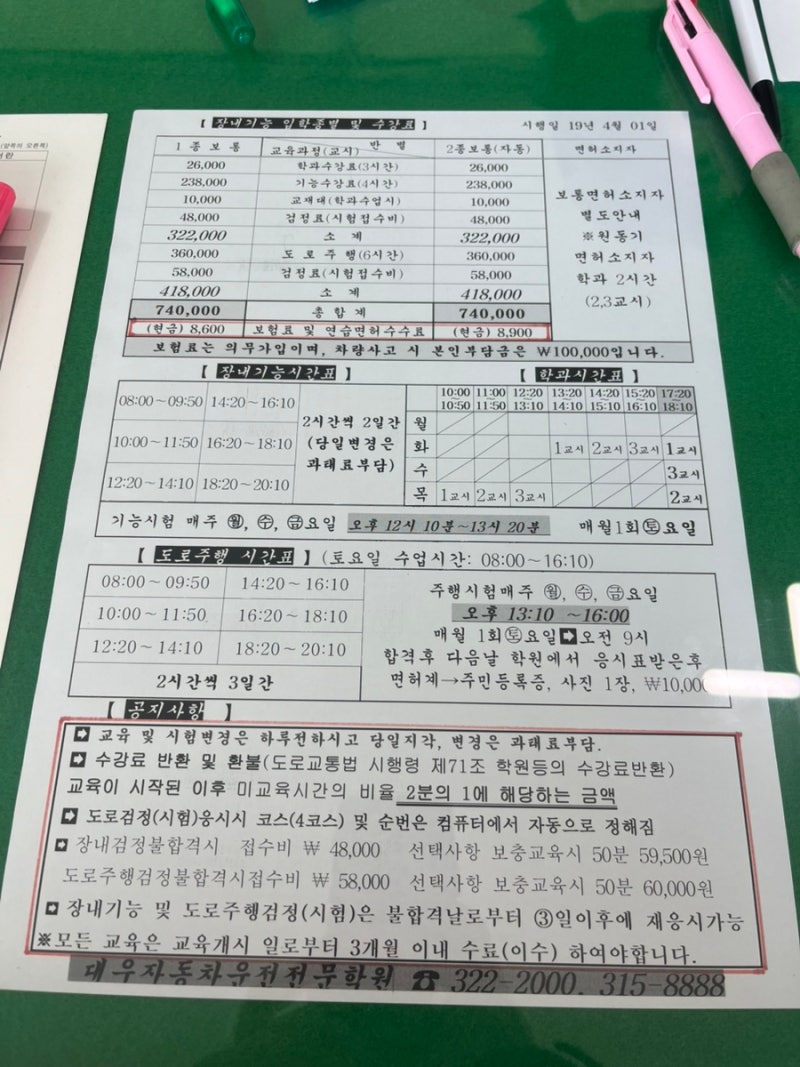 (앞쪽의 오른쪽)
【 장내기능 입학종별 및 수강료 】 시행일 19년 4월 01일
1 종 보 통 교육과정(교시) 반 별 2종보통(자동) 면허소지자
26,000 학과수강료(3시간) 26,000
238,000 기능수강료(4시간) 238,000
10,000 교재대(학과수업시) 10,000
48,000 검정료(시험접수비) 48,000
322,000 소 계 322,000
360,000 도 로 주 행(6시간) 360,000
58,000 검정료(시험접수비) 58,000
418,000 소 계 418,000
740,000 총 합 계 740,000
(현금) 8,600 보험료 및 연습면허수수료 (현금) 8,900
보통면허소지자
별도안내
※원동기
면허소지자
학과 2시간
(2,3교시)
보험료는 의무가입이며, 차량사고 시 본인부담금은 ₩100,000입니다.
【 장내기능시간표 】
08:00~09:50 14:20~16:10
10:00~11:50 16:20~18:10
12:20~14:10 18:20~20:10
2시간씩 2일간
(당일변경은
과태료부담)
【 학과시간표 】
10:00 11:00 12:20 13:20 14:20 15:20 17:20
10:50 11:50 13:10 14:10 15:10 16:10 18:10
월
화 1교시 2교시 3교시 1교시
수 3교시
목 1교시 2교시 3교시 2교시
기능시험 매주 월, 수, 금요일 오후 12시 10분~13시 20분 매월1회 토요일
【 도로주행 시간표 】 (토요일 수업시간: 08:00~16:10)
08:00~09:50 14:20~16:10
10:00~11:50 16:20~18:10
12:20~14:10 18:20~20:10
2시간씩 3일간
주행시험매주 월, 수, 금요일
오후 13:10 ~16:00
매월 1회토요일➡오전 9시
합격후 다음날 학원에서 응시표받은후
면허계→주민등록증, 사진 1장, ₩10,000
【 공지사항 】
➡ 교육 및 시험변경은 하루전하시고 당일지각, 변경은 과태료부담.
➡ 수강료 반환 및 환불(도로교통법 시행령 제71조 학원등의 수강료반환)
교육이 시작된 이후 미교육시간의 비율 2분의 1에 해당하는 금액
➡ 도로검정(시험)응시시 코스(4코스) 및 순번은 컴퓨터에서 자동으로 정해짐
➡ 장내검정불합격시 접수비 ₩ 48,000 선택사항 보충교육시 50분 59,500원
도로주행검정불합격시접수비 ₩ 58,000 선택사항 보충교육시 50분 60,000원
➡ 장내기능 및 도로주행검정(시험)은 불합격날로부터 ③일이후에 재응시가능
※모든 교육은 교육개시 일로부터 3개월 이내 수료(이수) 하여야합니다.
대우자동차운전전문학원 ☎ 322-2000, 315-8888